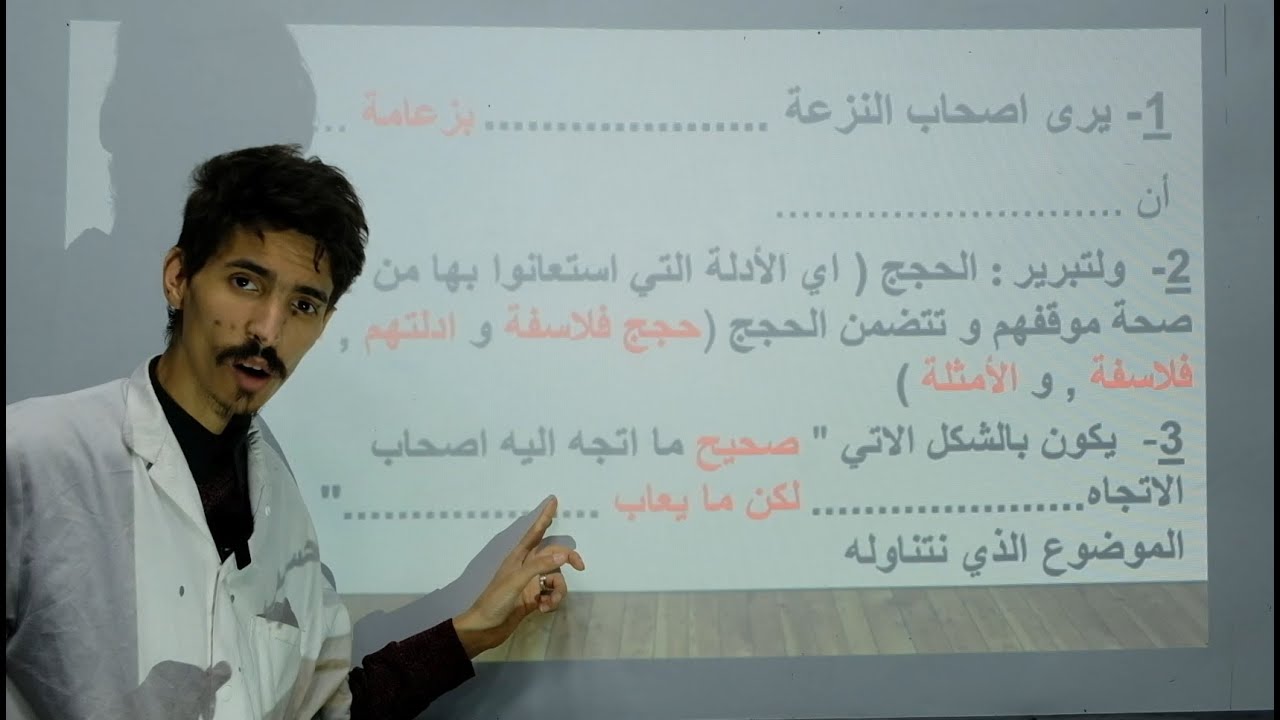 1- يرى اصحاب النزعة .................... بزعامة ...
أن ..........................
2- ولتبرير : الحجج ( اي الأدلة التي استعانوا بها من
صحة موقفهم و تتضمن الحجج (حجج فلاسفة و ادلتهم ,
فلاسفة , و الأمثلة )
3- يكون بالشكل الاتي " صحيح ما اتجه اليه اصحاب
الاتجاه..................... لكن ما يعاب ...................."
الموضوع الذي نتناوله